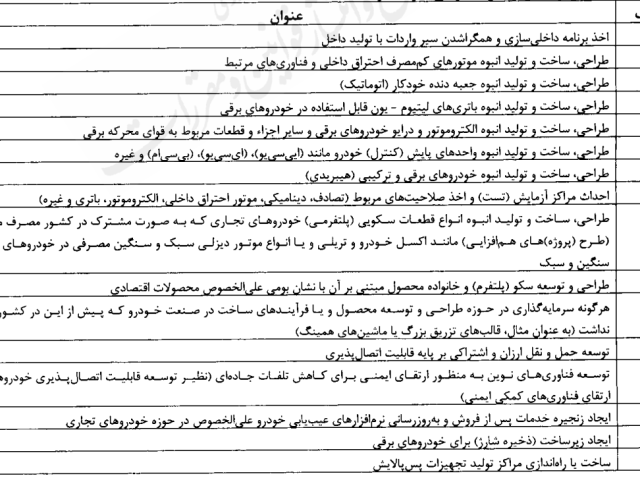 عنوان
اخذ برنامه داخلی‌سازی و همگراشدن سیر واردات با تولید داخل
طراحی، ساخت و تولید انبوه موتورهای کم‌مصرف احتراق داخلی و فناوری‌های مرتبط
طراحی، ساخت و تولید انبوه جعبه دنده خودکار (اتوماتیک)
طراحی، ساخت و تولید انبوه باتری‌های لیتیوم - یون قابل استفاده در خودروهای برقی
طراحی، ساخت و تولید انبوه الکتروموتور و درایو خودروهای برقی و سایر اجزاء و قطعات مربوط به قوای محرکه برقی
طراحی، ساخت و تولید انبوه واحدهای پایش (کنترل) خودرو مانند (ایی‌سی‌یو)، (ای‌سی‌یو)، (بی‌سی‌ام) و غیره
طراحی، ساخت و تولید انبوه خودروهای برقی و ترکیبی (هیبریدی)
احداث مراکز آزمایش (تست) و اخذ صلاحیت‌های مربوط (تصادف، دینامیکی، موتور احتراق داخلی، الکتروموتور، باتری و غیره)
طراحی، ساخت و تولید انبوه انواع قطعات سکویی (پلتفرمی) خودروهای تجاری که به صورت مشترک در کشور مصرف
(طرح (پروژه)های هم‌افزایی) مانند اکسل خودرو و تریلی و یا انواع موتور دیزلی سبک و سنگین مصرفی در خودروهای
سنگین و سبک
طراحی و توسعه سکو (پلتفرم) و خانواده محصول مبتنی بر آن با نشان بومی علی‌الخصوص محصولات اقتصادی
هرگونه سرمایه‌گذاری در حوزه طراحی و توسعه محصول و یا فرآیندهای ساخت در صنعت خودرو که پیش از این در کشور
نداشت (به عنوان مثال، قالب‌های تزریق بزرگ یا ماشین‌های همینگ)
توسعه حمل و نقل ارزان و اشتراکی بر پایه قابلیت اتصال‌پذیری
توسعه فناوری‌های نوین به منظور ارتقای ایمنی برای کاهش تلفات جاده‌ای (نظیر توسعه قابلیت اتصال‌پذیری خودروها
ارتقای فناوری‌های کمکی ایمنی)
ایجاد زنجیره خدمات پس از فروش و به‌روزرسانی نرم‌افزارهای عیب‌یابی خودرو علی‌الخصوص در حوزه خودروهای تجاری
ایجاد زیرساخت (ذخیره شارژ) برای خودروهای برقی
ساخت یا راه‌اندازی مراکز تولید تجهیزات پس‌پالایش